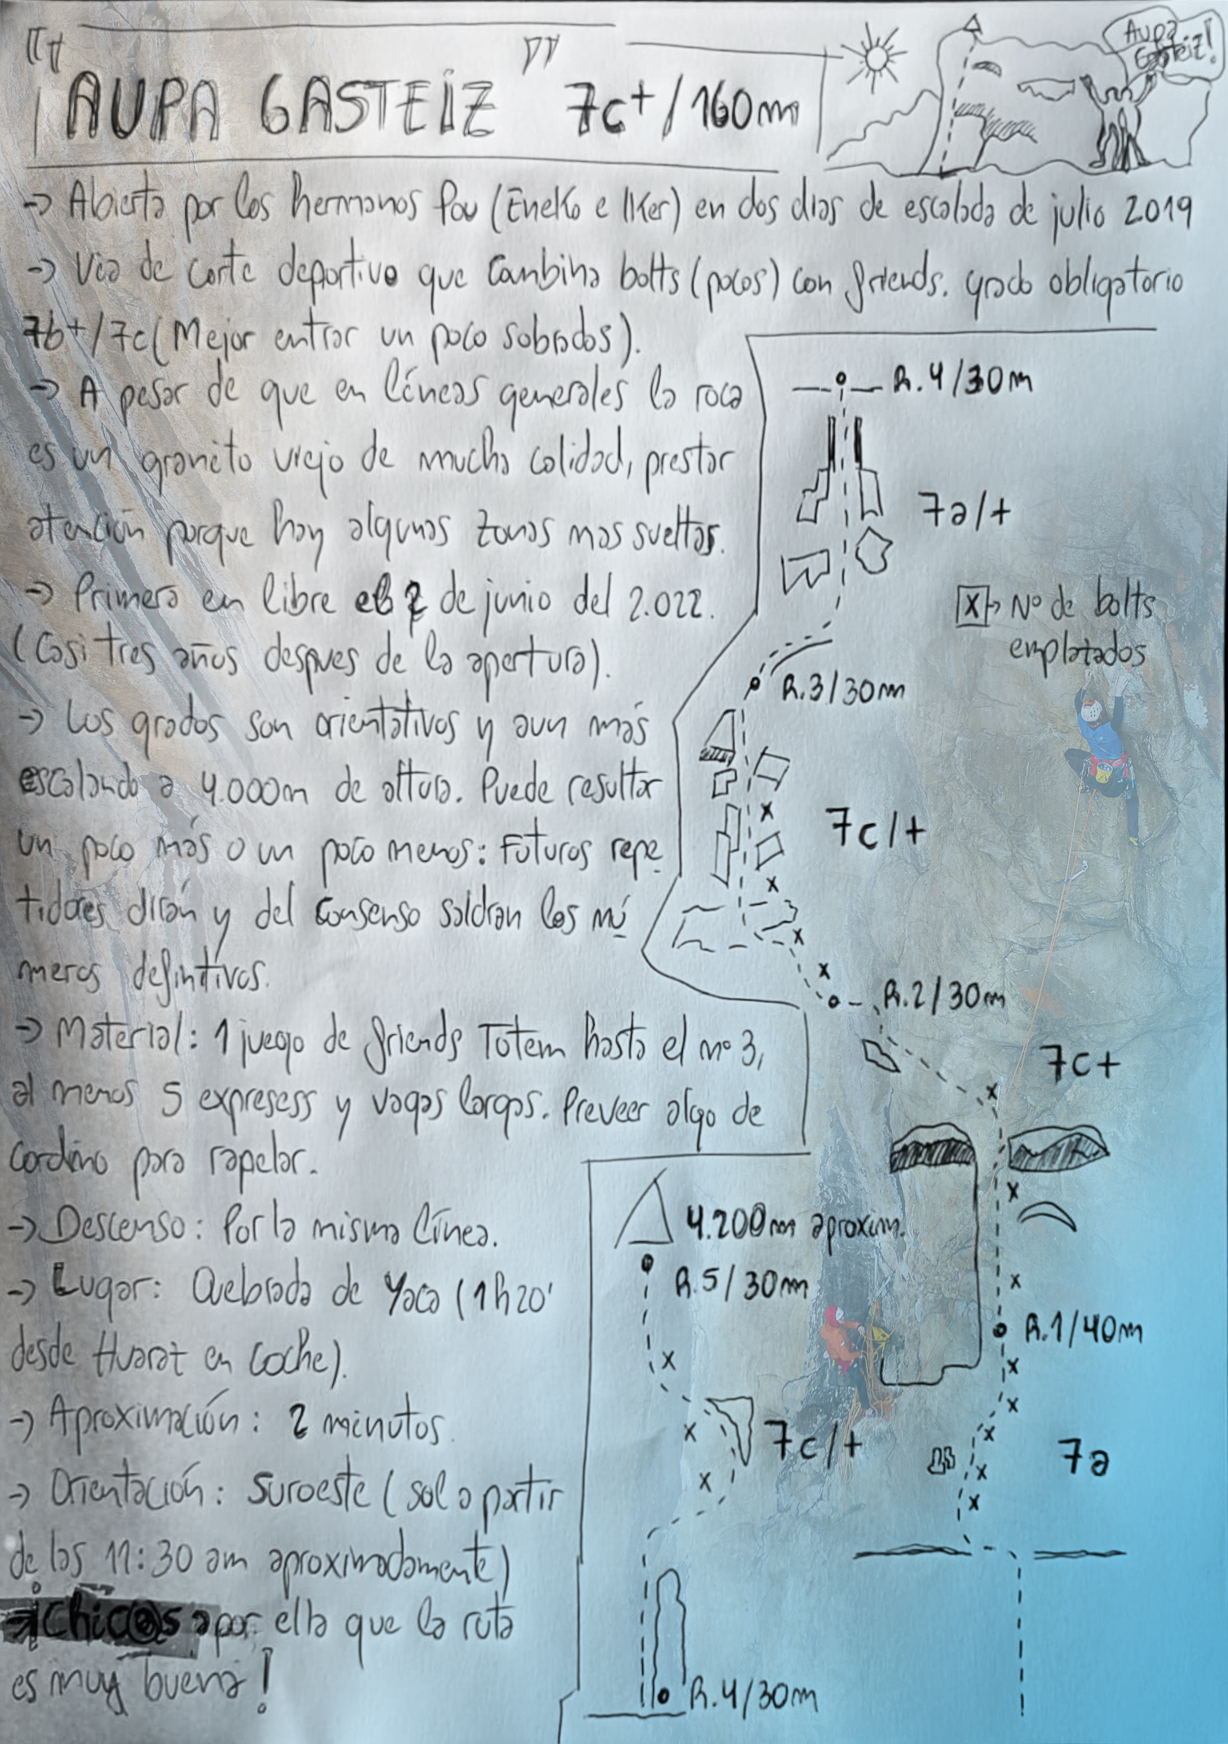 "AUPA GASTEIZ" 7c+/160m
Aupa
Gasteiz!
→ Abierta por los hermanos Pou (Eneko e Iker) en dos dias de escalada de julio 2019
→ Via de corte deportivo que combina bolts (pocos) con friends. grado obligatorio
7b+/7c (Mejor entrar un poco sobrados).
→ A pesar de que en líneas generales la roca
es un granito viejo de mucha calidad, prestar
atención porque hay algunas zonas mas sueltas.
→ Primera en libre el 2 de junio del 2.022.
(Casi tres años despues de la apertura).
→ Los grados son orientativos y aun más
escalando a 4.000m de altura. Puede resultar
un poco más o un poco menos: Futuros repe
tidores dirán y del consenso saldran los nú
meros definitivos.
→ Material: 1 juego de friends Totem hasta el nº 3,
al menos 5 expresess y vagas largas. Preveer algo de
cordino para rapelar.
→ Descenso: Por la misma línea.
→ Lugar: Quebrada de Yaca (1h20'
desde Huaraz en coche).
→ Aproximación: 2 minutos
→ Orientación: Suroeste (sol a partir
de las 11:30 am aproximadamente)
→¡Chic@s a por ella que la ruta
es muy buena!
R.4/30m
7a/+
X → Nº de bolts
emplatados
R.3/30m
7c/+
R.2/30m
7c+
R.1/40m
7a
4.200m aproxim.
R.5/30m
7c/+
R.4/30m